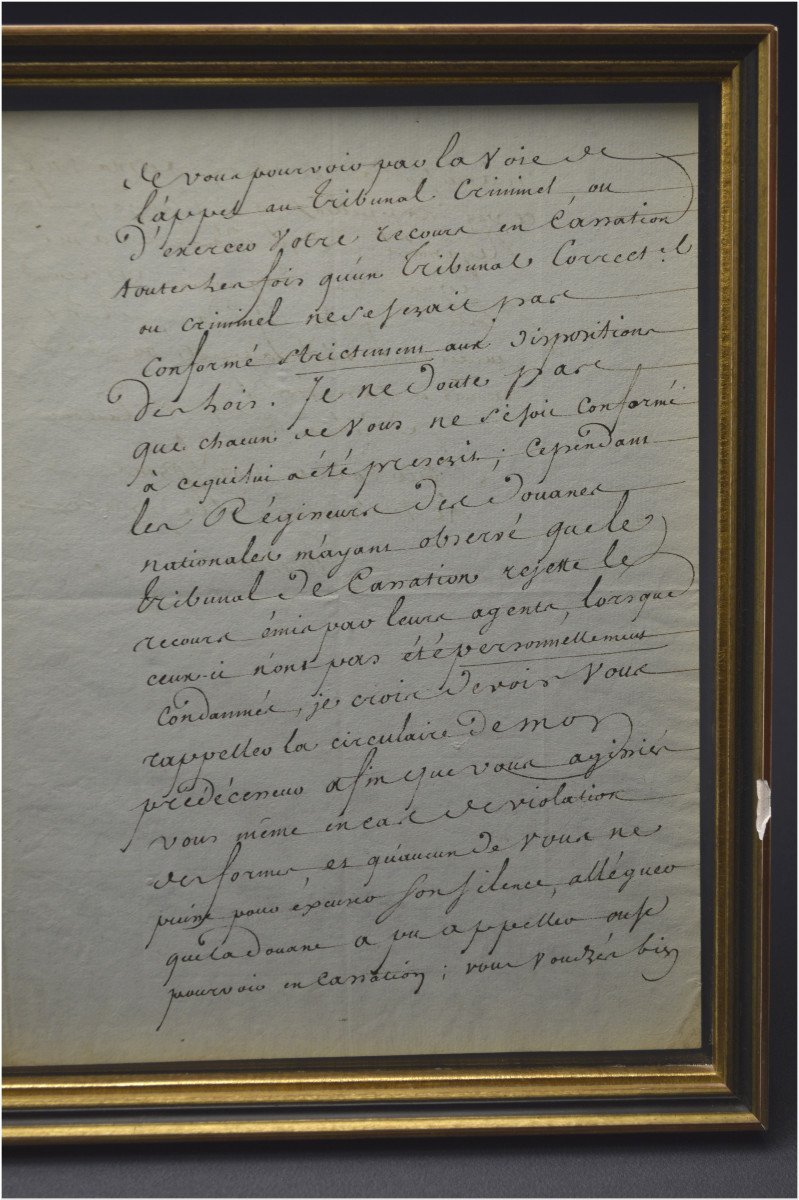 de vous pourvoir par la Voie de
l'appel au Tribunal Criminel, ou
d'exercer Votre recours en Cassation
toutes les fois qu'un Tribunal Correct.l
ou criminel ne se serait pas
Conformé strictement aux dispositions
des Lois. Je ne doute pas
que chacun de Vous ne se soit Conformé
à ce qui lui a été prescrit ; Cependant
les Régisseurs des Douanes
nationales m'ayant observé que le
tribunal de Cassation rejette le
recours émis par leurs agents, lorsque
ceux-ci n'ont pas été personnellement
Condamnés, je crois devoir Vous
rappeller la circulaire de mon
prédécesseur afin que vous agissiés
vous même en cas de violation
des formes et qu'aucun de vous ne
puisse pour éxcuser son silence, alléguer
que la douane a pu appeller ou se
pourvoir en Cassation ; vous voudrés bien